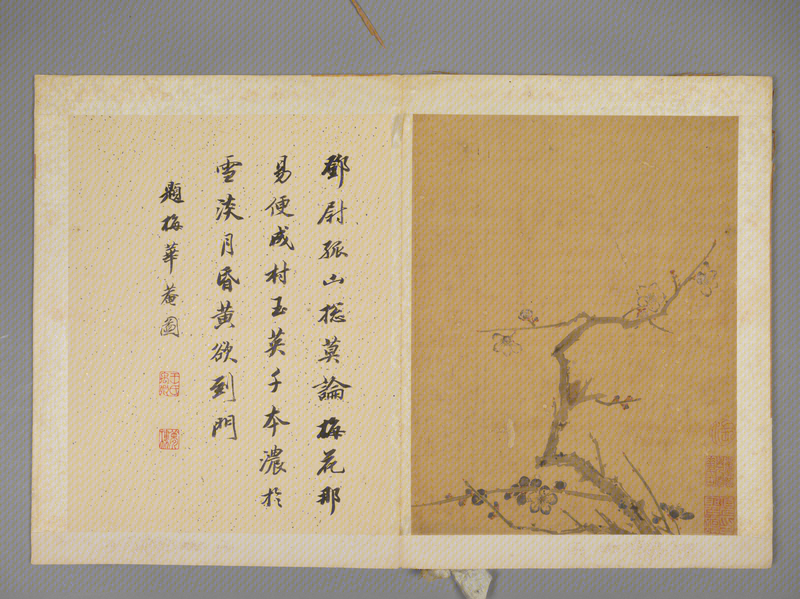 鄧尉孤山總莫論梅花那
易便成村玉英千本濃於
雪淡月昏黃欲到門
題梅華菴圖